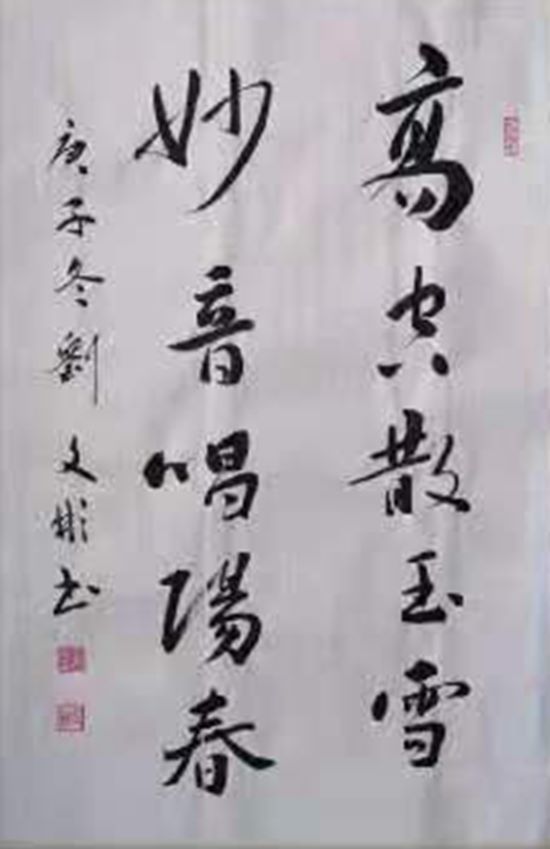 高散玉雪
妙音唱陽春
庚子冬劉文彬书